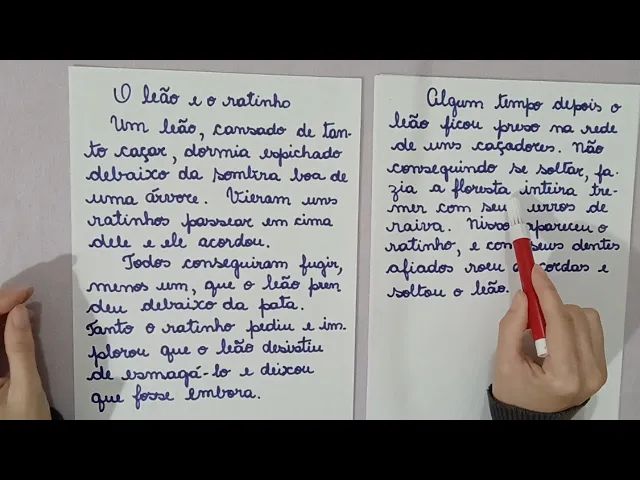 O leão e o ratinho
Um leão, cansado de tan-
to caçar, dormia espichado
debaixo da sombra boa de
uma árvore. Vieram uns
ratinhos passear em cima
dele e ele acordou.
Todos conseguiram fugir,
menos um, que o leão pren
deu debaixo da pata.
Tanto o ratinho pediu e im-
plorou que o leão desistiu
de esmagá-lo e deixou
que fosse embora.
Algum tempo depois o
leão ficou preso na rede
de uns caçadores. Não
conseguindo se soltar, fa-
zia a floresta inteira tre-
mer com seu urros de
raiva. Nisso apareceu o
ratinho, e com seus dentes
afiados roeu as cordas e
soltou o leão.